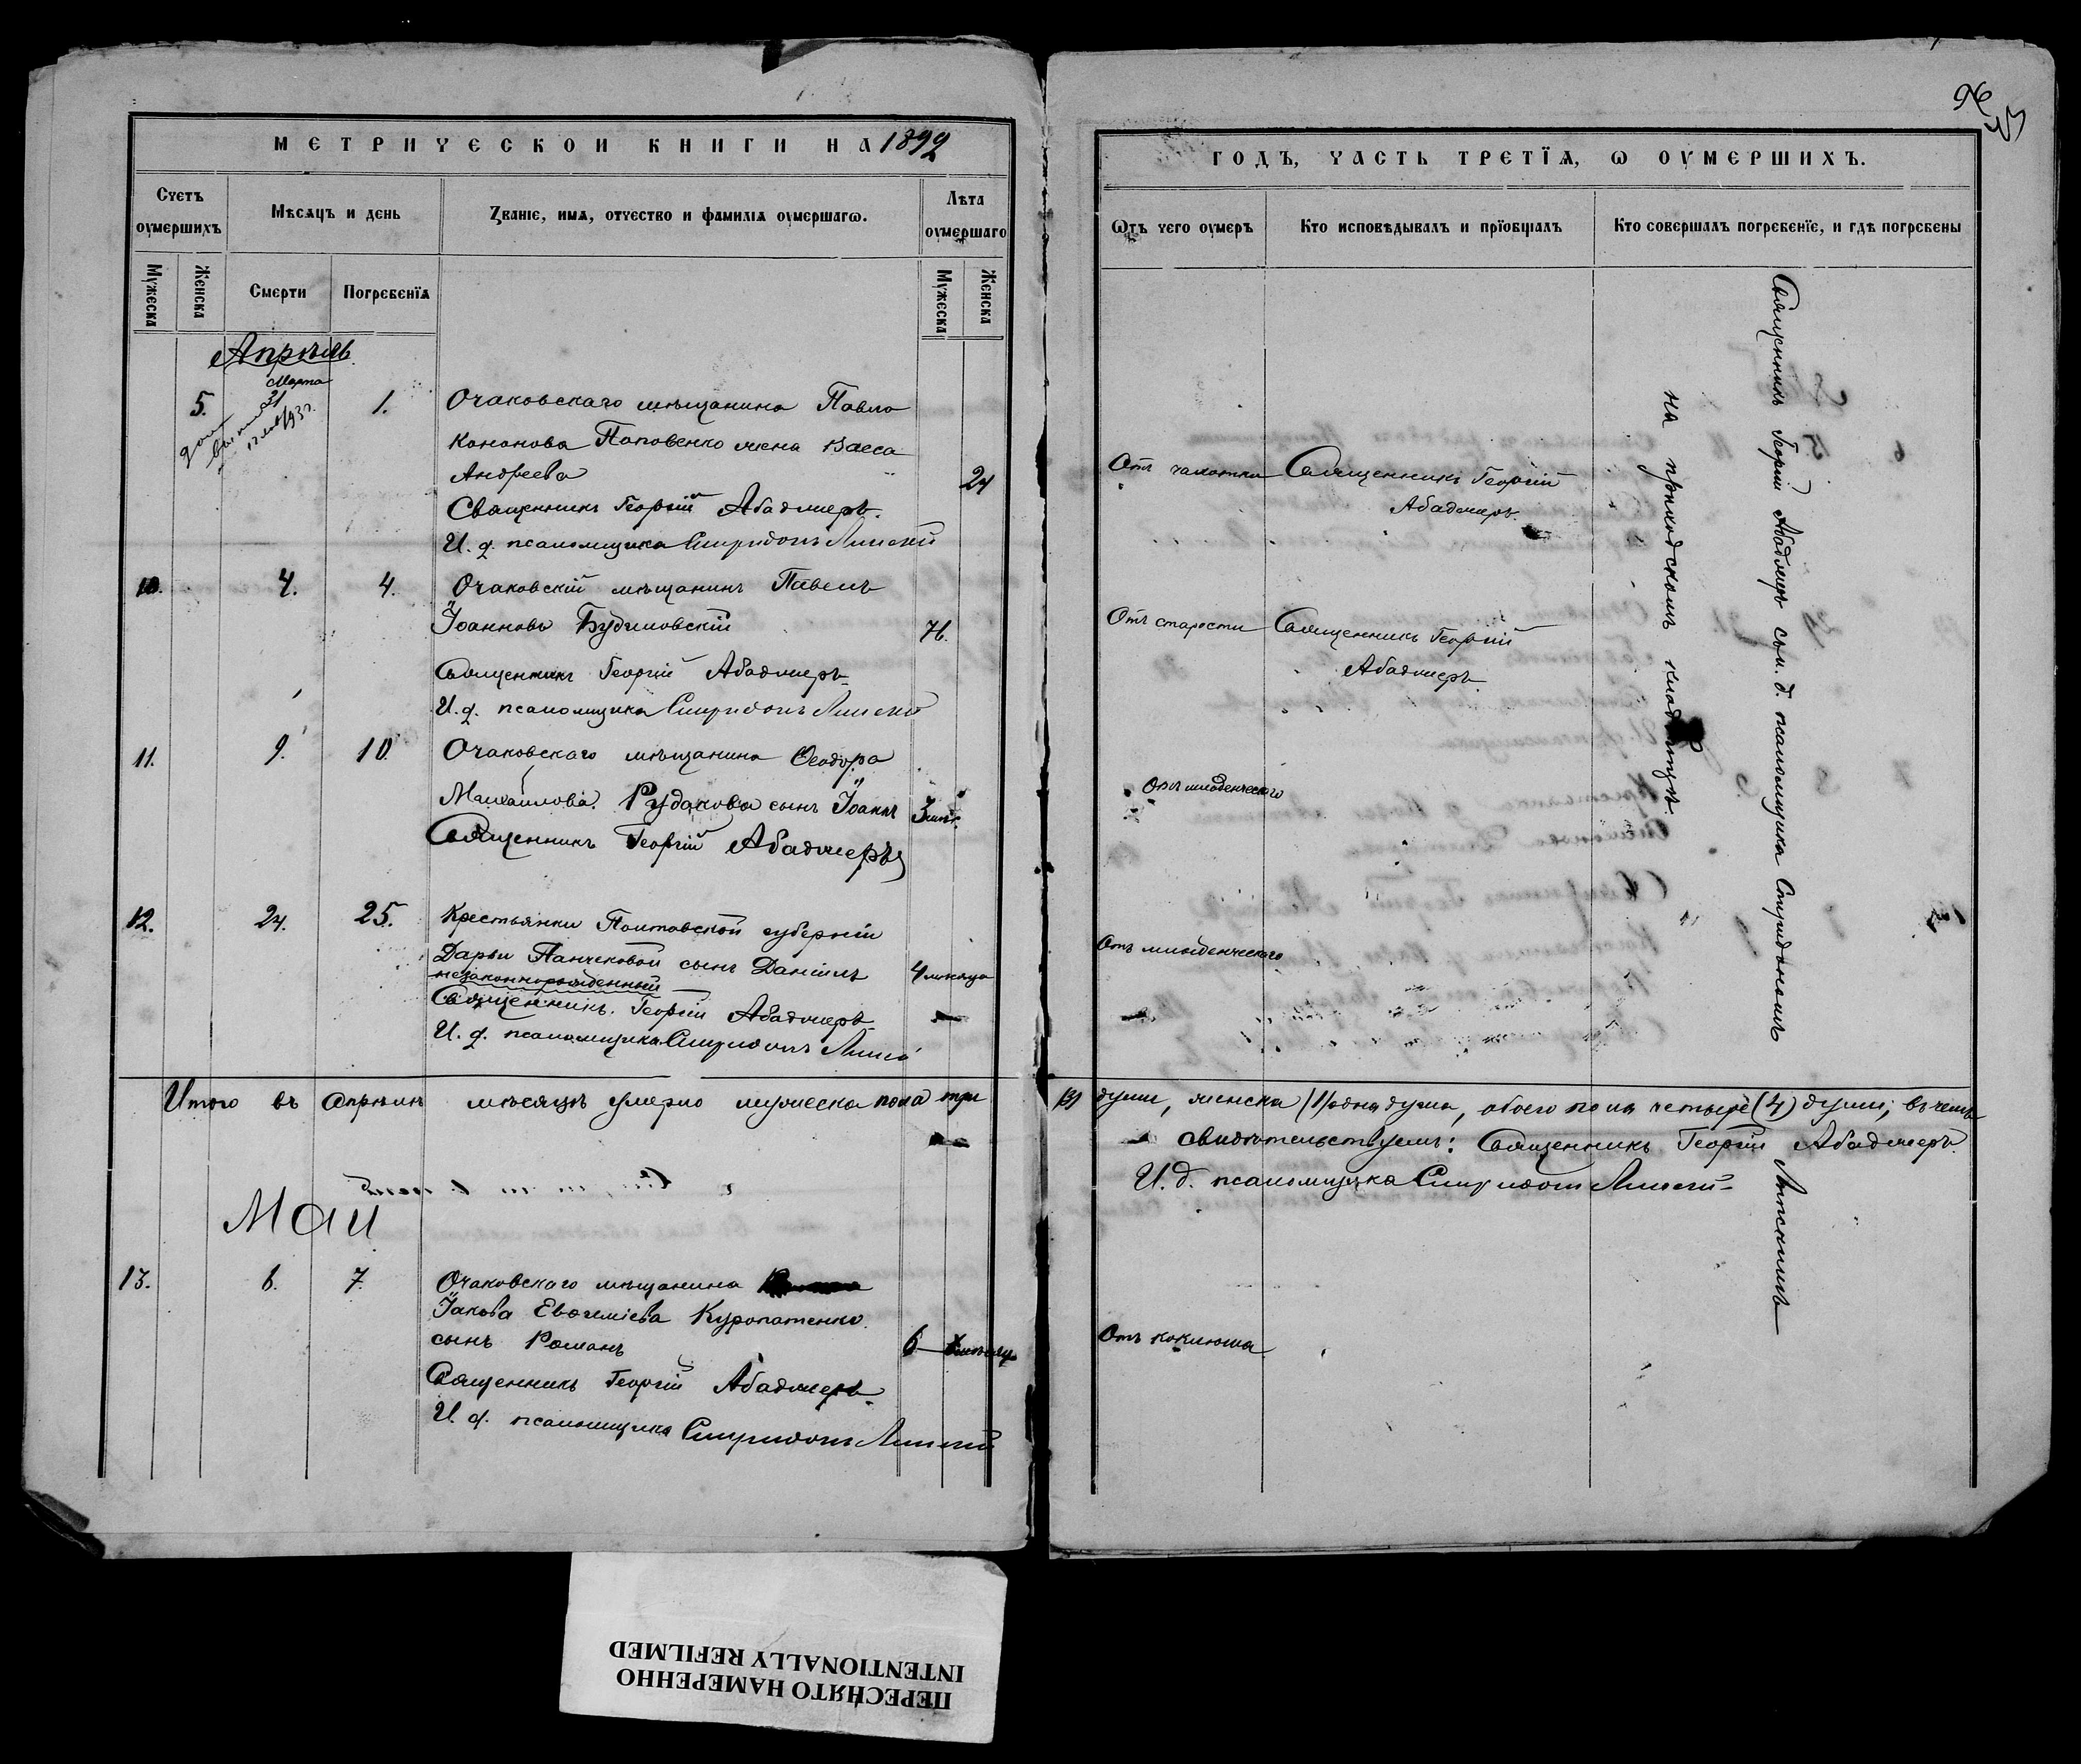 МЕТРИЧЕСКОЙ КНИГИ НА 1892
Счетъ оумершихъ
Мѣсяцъ и день
Званіе, имя, отчество и фамилія оумершагѡ.
Лѣта оумершаго
Мужеска
Женска
Смерти
Погребенїя
Мужеска
Женска
Апрѣль
Марта
5.
31
1.
Очаковскаго мѣщанина Павла
Кононова Поповенко жена Васса
Андреева
24
Священникъ Георгій Абаджеръ.
И. д. псаломщика Спиридонъ Линскій
10.
4.
4.
Очаковскій мѣщанинъ Павелъ
Іоанновъ
76.
Священникъ Георгій Абаджеръ
И. д. псаломщика Спиридонъ Линскій
11.
9.
10.
Очаковскаго мѣщанина Ѳеодора
Михайлова Рудакова сынъ Іоаннъ
3
Священникъ Георгій Абаджеръ
12.
24.
25.
Крестьянки Полтавской губерніи
Дарьи Панчековой сынъ Даніилъ
4 мѣсяца
незаконнорожденный
Священникъ Георгій Абаджеръ
И. д. псаломщика Спиридонъ Линскій
Итого въ Апрѣлѣ мѣсяцѣ умерло мужеска пола три
Май
13.
6.
7.
Очаковскаго мѣщанина
Іакова Евѳиміева Куропатенко
сынъ Романъ
6
Священникъ Георгій Абаджеръ
И. д. псаломщика Спиридонъ Линскій
96
ГОДЪ, ЧАСТЬ ТРЕТЇЯ, Ѡ ОУМЕРШИХЪ.
Ѿтъ чего оумеръ
Кто исповѣдывалъ и прїобщалъ
Кто совершалъ погребенїе, и гдѣ погребены
Отъ чахотки
Священникъ Георгій
Абаджеръ.
Отъ старости
Священникъ Георгій
Абаджеръ.
Отъ младенческаго
Отъ младенческаго
Священникъ Георгій Абаджеръ съ и. д. псаломщика Спиридономъ
Линскимъ
на приходскомъ кладбищѣ.
(3) души, женска (1) одна душа, обоего пола четыре (4) души; въ чемъ
свидѣтельствуемъ: Священникъ Георгій Абаджеръ.
И. д. псаломщика Спиридонъ Линскій
Отъ коклюша
ПЕРЕСНЯТО НАМЕРЕННО
INTENTIONALLY REFILMED